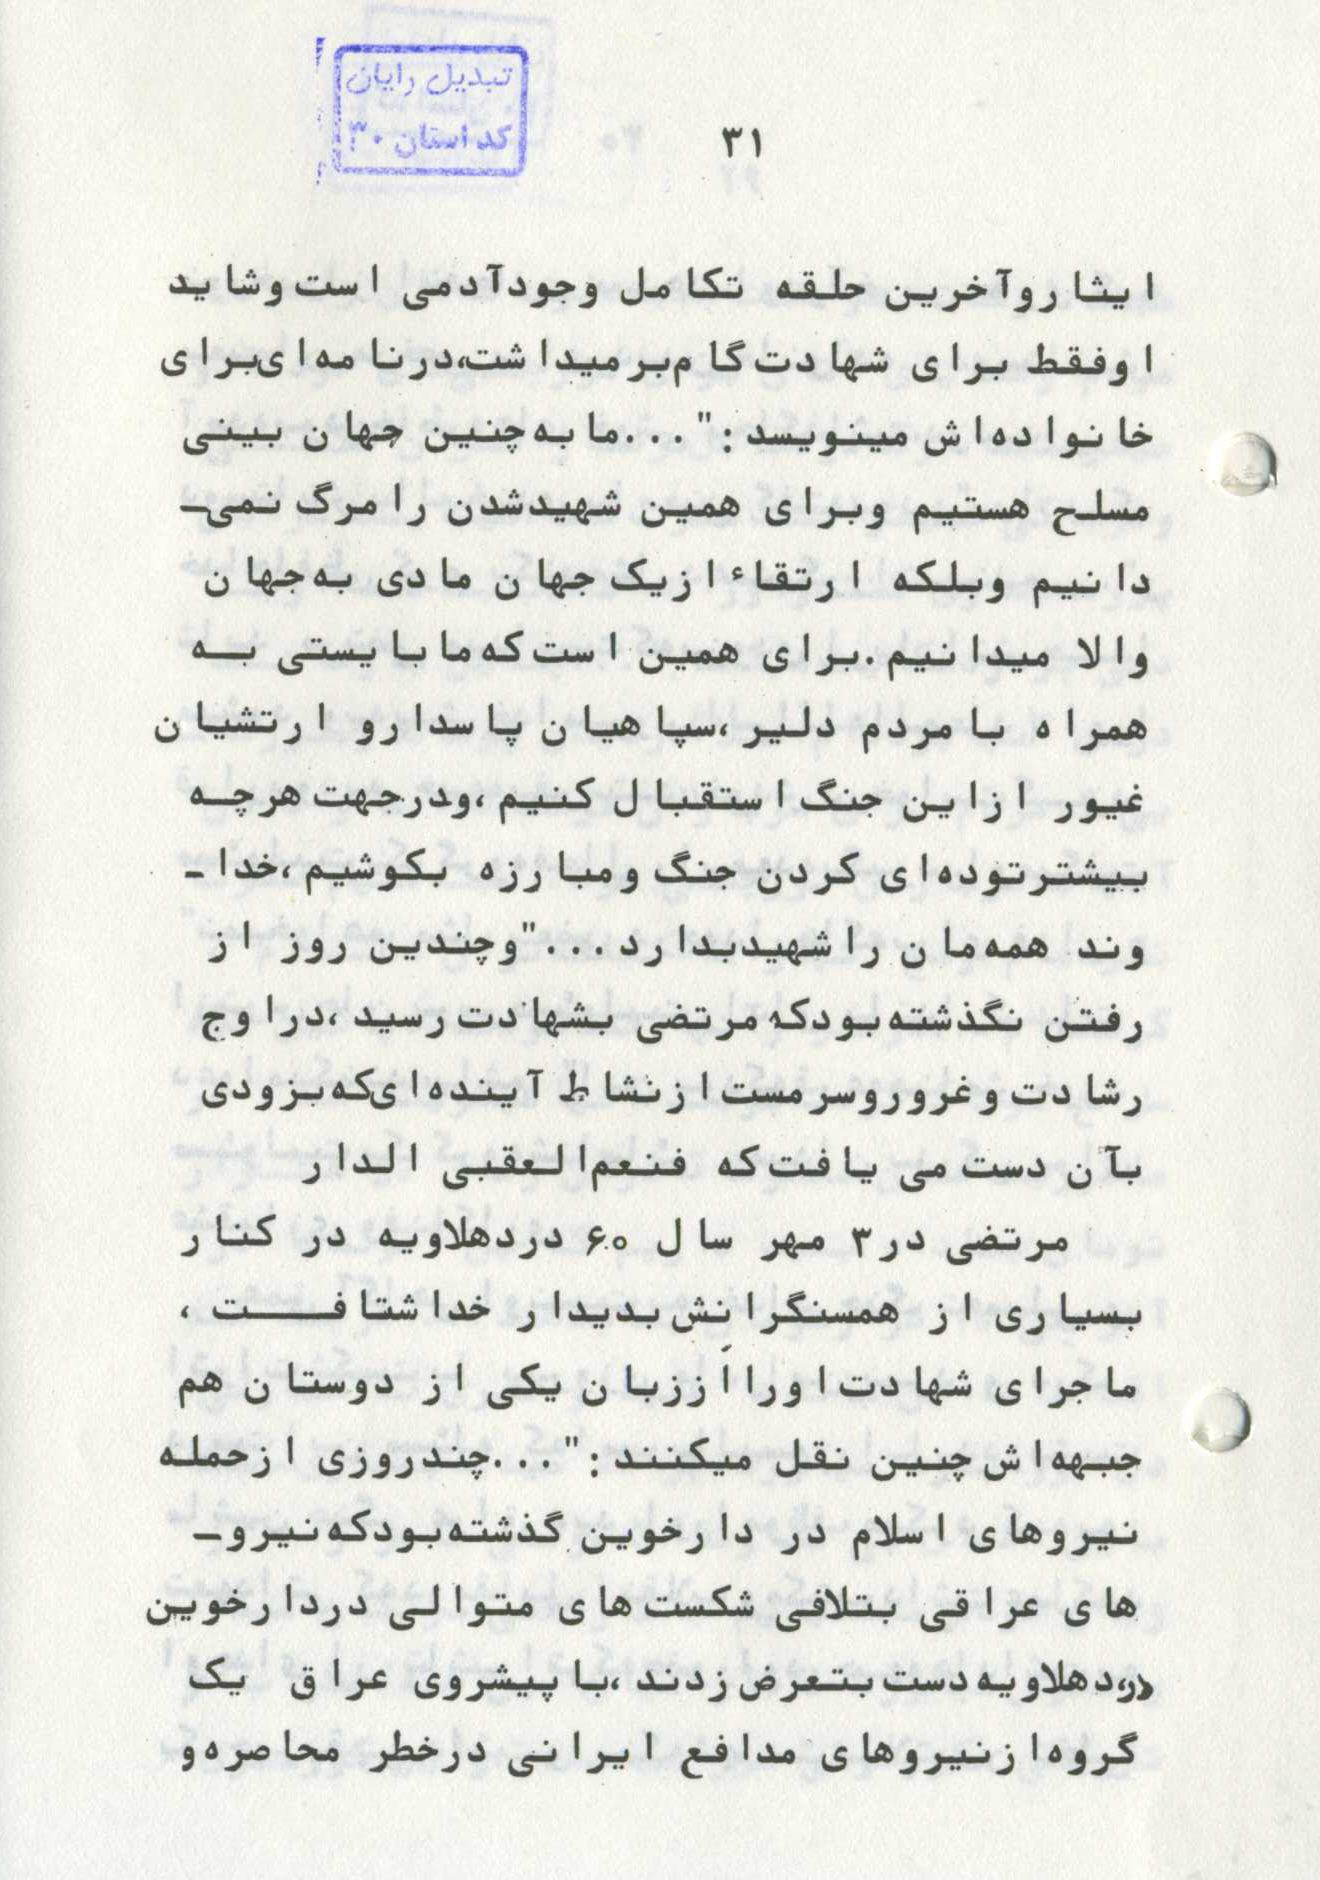 تبدیل رایان
کد استان ۳۰
۳۱
ایثار و آخرین حلقه تکامل وجود آدمی است و شاید
او فقط برای شهادت گام برمیداشت،در نامه ای برای
خانواده اش مینویسد :"...ما به چنین جهان بینی
مسلح هستیم و برای همین شهید شدن را مرگ نمی-
دانیم و بلکه ارتقاء از یک جهان مادی به جهان
والا میدانیم .برای همین است که ما بایستی به
همراه با مردم دلیر ،سپاهیان پاسدار و ارتشیان
غیور از این جنگ استقبال کنیم ،و در جهت هر چه
بیشتر توده ای کردن جنگ و مبارزه بکوشیم ،خدا-
وند همه مان را شهید بدارد ..." و چندین روز از
رفتن نگذشته بود که مرتضی بشهادت رسید ،در اوج
رشادت و غرور و سرمست از نشاط آینده ای که بزودی
بآن دست می یافت که فنعم العقبی الدار
مرتضی در ۳ مهر سال ۶۰ در دهلاویه در کنار
بسیاری از همسنگرانش بدیدار خدا شتافت ،
ماجرای شهادت او را از زبان یکی از دوستان هم
جبهه اش چنین نقل میکنند :"...چند روزی از حمله
نیروهای اسلام در دارخوین گذشته بود که نیرو-
های عراقی بتلافی شکست های متوالی در دارخوین
در دهلاویه دست بتعرض زدند ،با پیشروی عراق یک
گروه از نیروهای مدافع ایرانی در خطر محاصره و